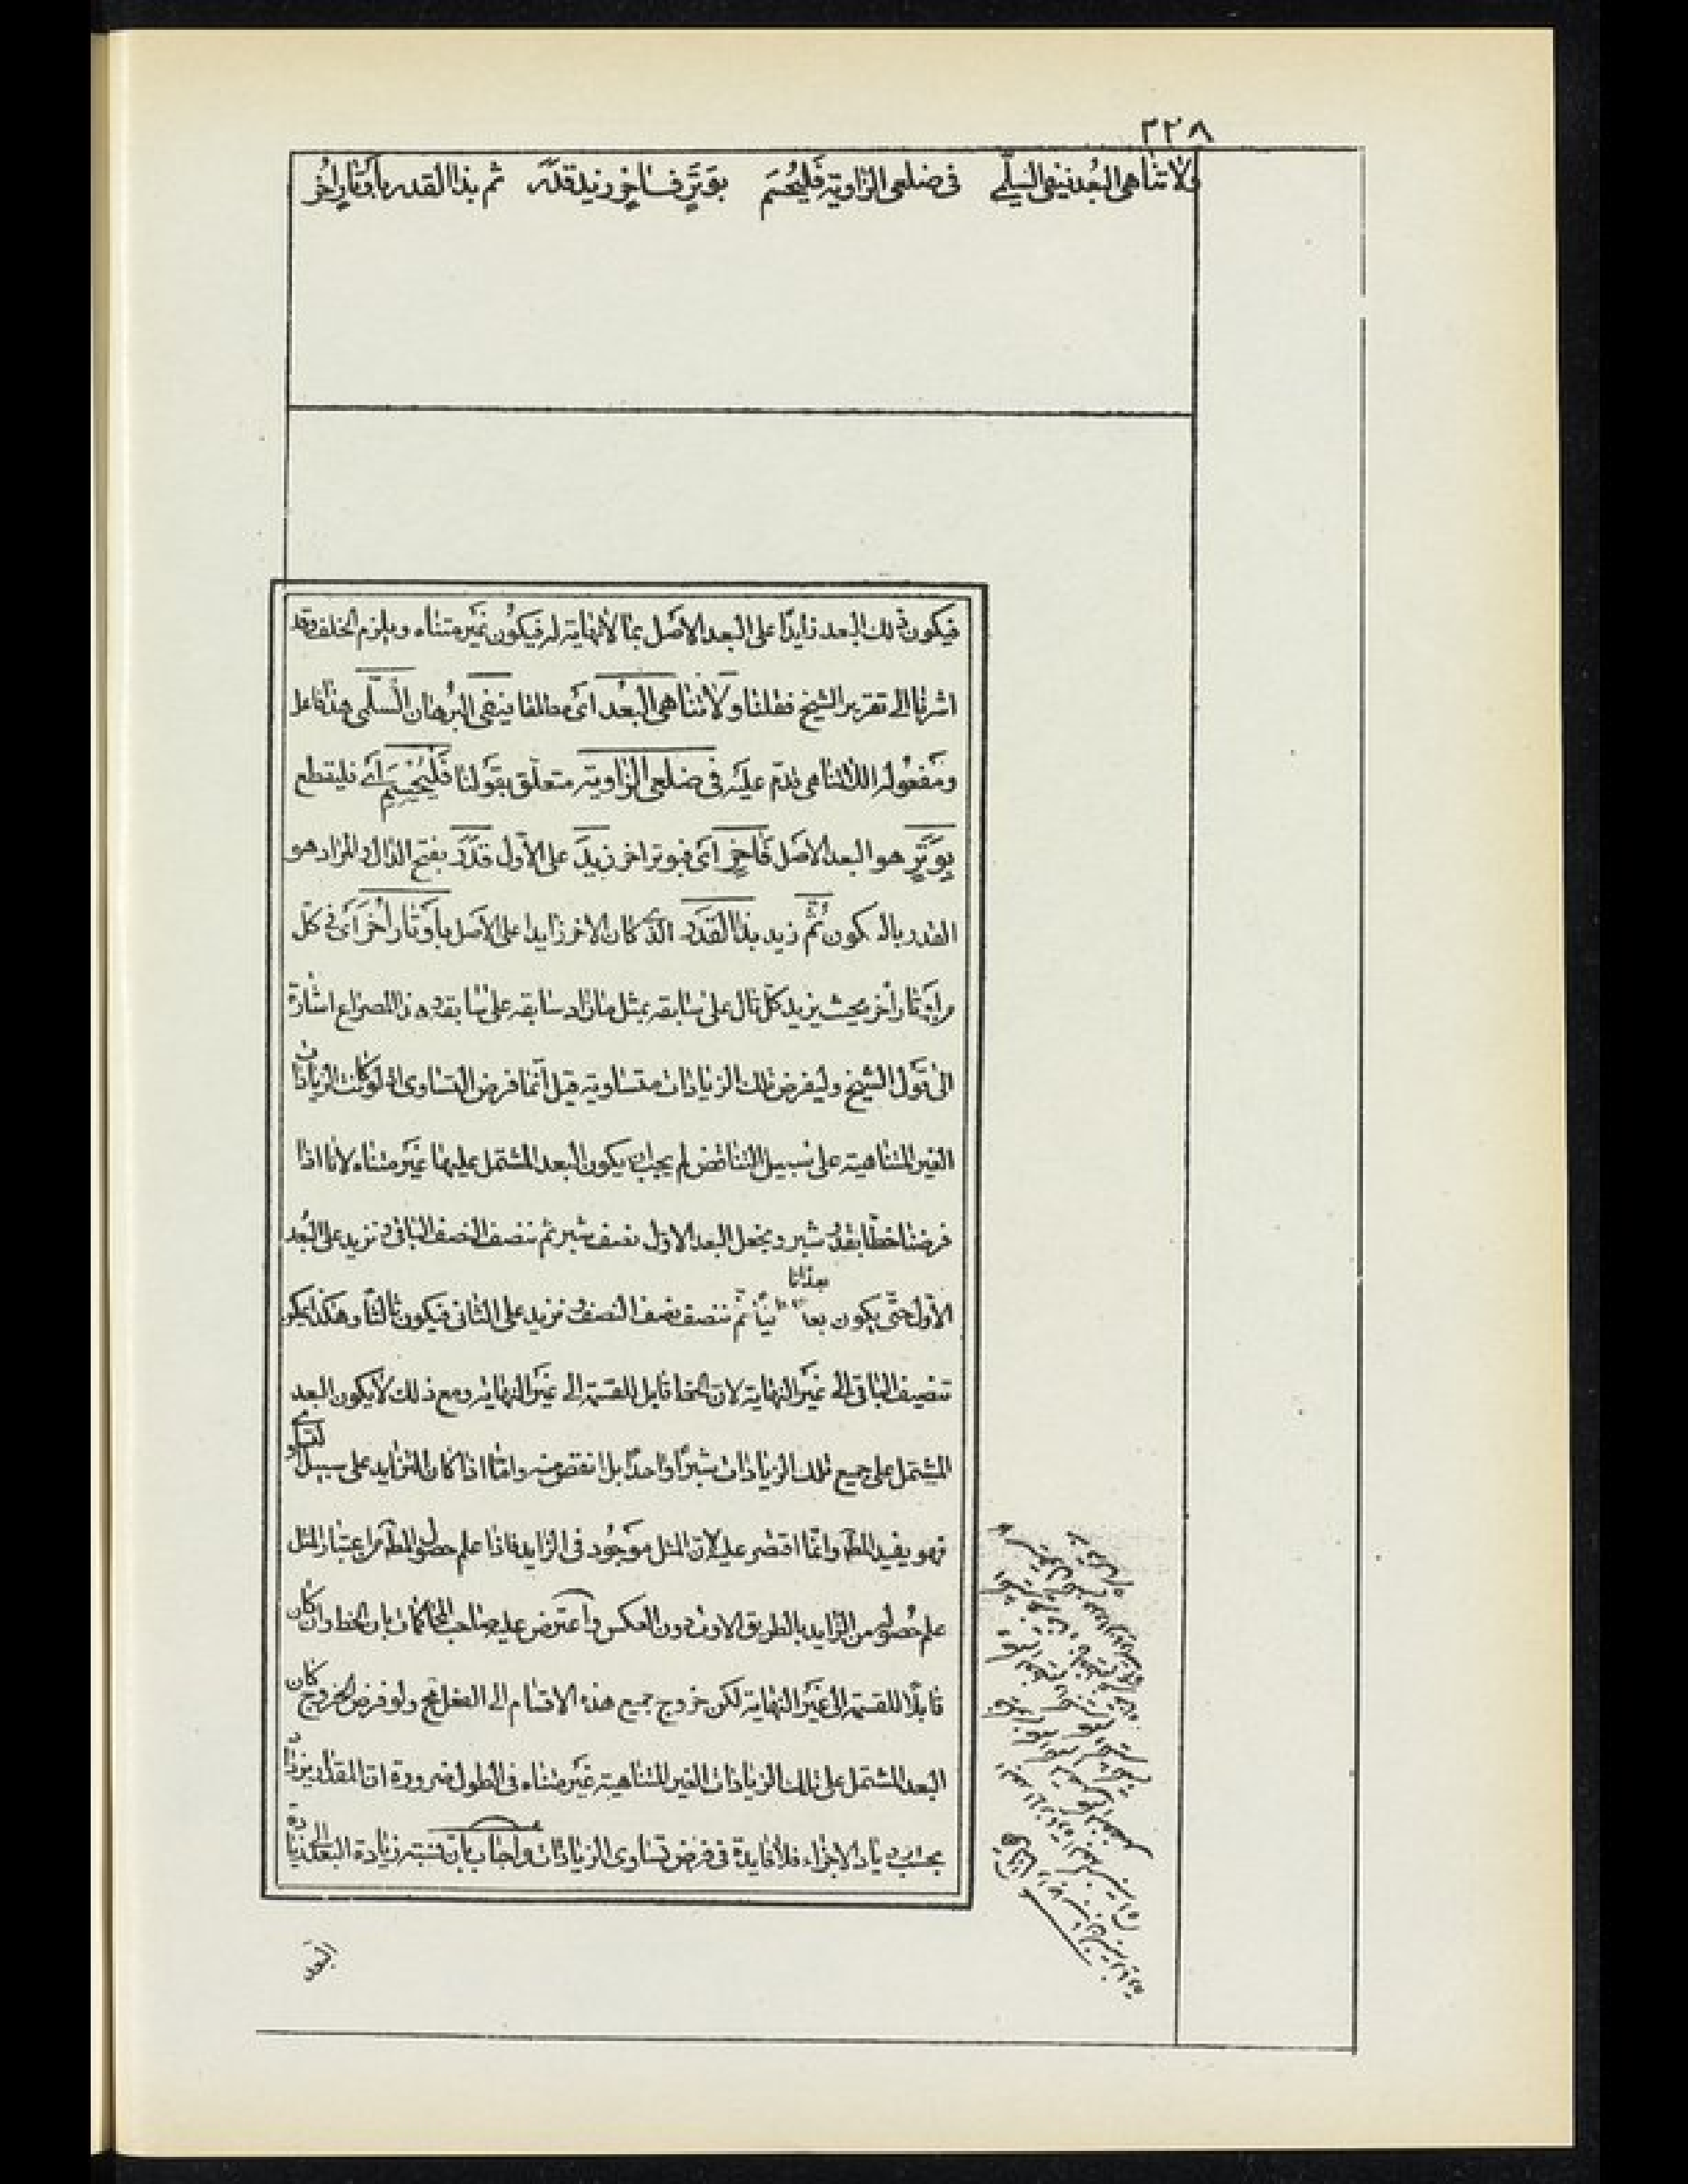 ٢٢٨
ولا تناهى البعد ينفى السلّمى في ضلعى الزاوية فليُحسَم بوَتَرٍ فآخرٍ زيد قدَر ثم بذا القدر بأوتارٍ اُخر
فيكون ذلك البعد زايدًا على البعد الاصل بما لا نهاية له فيكون غير متناه ويلزم الخلف وقد
اشرنا الى تقرير الشيخ فقلنا ولا تناهى البعد اى مطلقا ينفى البرهان السلّمى هذا فاعل
ومفعوله اللاتناهى قدّم عليه في ضلعى الزاوية متعلّق بقولنا فليُحسَم اى فليقطع
بوَتَرٍ هو البعد الاصل فآخرٍ اى فبوتر اخر زيدَ على الأول قَدَر بفتح الدال والمراد هو
القدر بالسكون ثُمّ زيد بذا القدر الذى كان الاخر زايدا على الاصل بأوتار اُخر اى في كل
من اوتار اُخر بحيث يزيد كلّ تال على سابقه بمثل ما زاد سابقه على سابقه وهذا المصراع اشارة
الى قول الشيخ وليفرض تلك الزيادات متساوية قيل انّما فرض التساوى اذ لو كانت الزيادات
الغير المتناهية على سبيل التناقص لم يجب ان يكون البعد المشتمل عليها غير متناه لانا اذا
فرضنا خطّا بقدر شبر ونجعل البعد الاول نصف شبر ثم ننصف النصف الباقى ونزيد على البُعد
الأول حتّى يكون بعدا ثانيًا ثمّ ننصف نصف النصف ونزيد على الثانى فيكون ثالثًا وهكذا يكون
تنصيف الباقى الى غير النهاية لان الخط قابل للقسمة الى غير النهاية ومع ذلك لا يكون البعد
المشتمل على جميع تلك الزيادات شبرًا واحدًا بل انقص منه وامّا اذا كان التزايد على سبيل التساوى
فهو يفيد المط وانّما اقتصر عليه لان المثل موجود في الزايد فاذا علم حصول المط من اعتبار المثل
علم حصوله من الزايد بالطريق الاولى دون العكس واعترض عليه صاحب المحاكمات بان الخط وان كان
قابلًا للقسمة الى غير النهاية لكن خروج جميع هذه الاقسام الى الفعل مح ولو فرض الخروج كان
البعد المشتمل على تلك الزيادات الغير المتناهية غير متناه في الطول ضرورة ان المقدار يزداد
بحسب ازدياد الاجزاء فلا فايدة في فرض تساوى الزيادات واجاب بان نسبة زيادة البعد الى زيادة
البعد